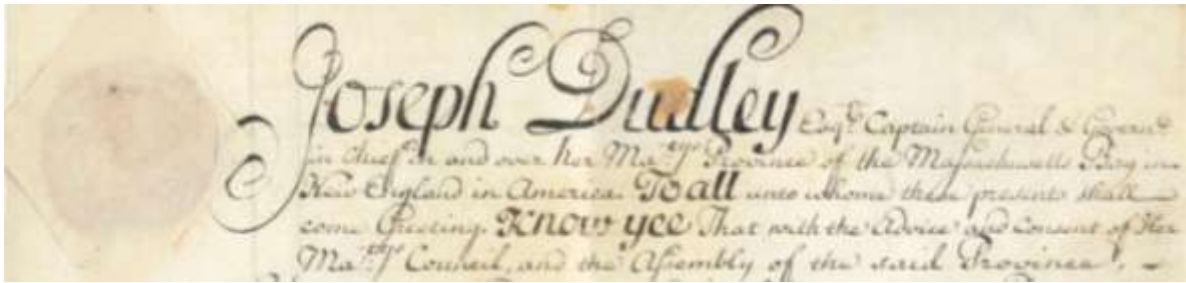 Joseph Dudley Esqr. Captain General & Governr
in Chief in and over her Matys Province of the Massachusetts Bay in
New England in America To all unto whome these presents shall
come Greeting. Know yee That with the Advice and Consent of Her
Matys Council, and the Assembly of the said Province,